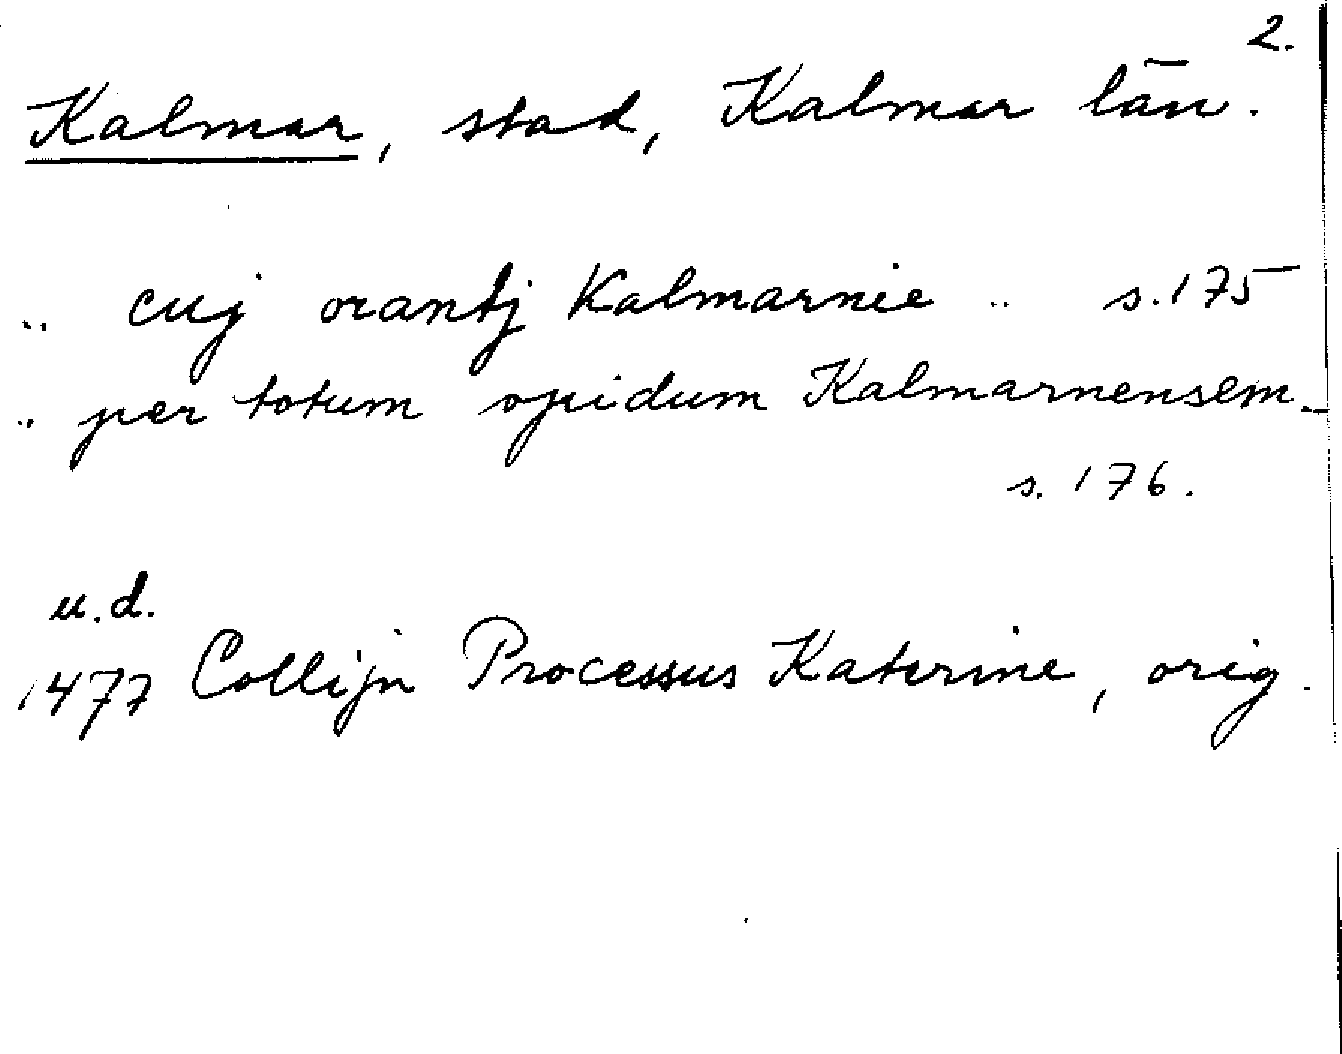 2.
Kalmar, stad, Kalmar län.
.. cuj orantj Kalmarnie .. s. 175
.. per totum opidum Kalmarnensem..
s. 176.
u.d.
1477 Collijn Processus Katerine, orig.